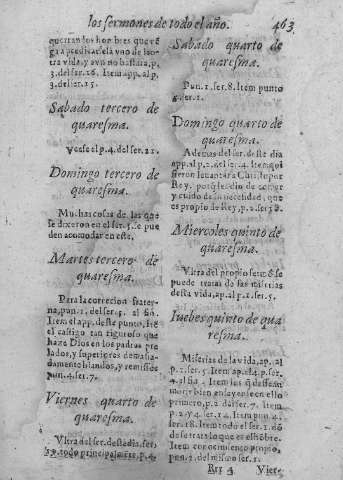 los sermones de todo el año. 463
querran los hombres que ve
ga a predicarsela vno de la o
tra vida, y aun no bastara, p.
3. del ser. 16. Item app. al p.
3. del ser. 15.
Sabado tercero de
quaresma.
Vease el p. 4. del ser. 21.
Domingo tercero de
quaresma.
Muchas cosas de las que
se dixeron en el ser. 5. se pue
den acomodar en este,
Martes tercero de
quaresma.
Para la correcion frater-
na, pun. 1. del ser. 5. al fin.
Item el app. deste punto, sirue
el castigo tan riguroso que
haze Dios en los padres pre
lados, y superiores demasia-
damente blandos, y remissos
pun. 4. ser. 7.
Viernes quarto de
quaresma.
Vltra del ser. deste dia, ser.
todo principalmēte, p. 4.
Sabado quarto de
quaresma.
Pun. 1. ser. 8. Item punto
ser. 2.
Domingo quarto de
quaresma.
Ademas del ser. deste dia
app. al p. 2. del ser. 4. Item qui
sieron leuantar a Christo por
Rey, porq̃ les dio de comer
y cuidò de su necesidad, que
es propio de Rey, p. 2. ser.
Miercoles quinto de
quaresma.
Vltra del propio sermõ se
puede tratar de las miserias
desta vida, ap. al p. 1. ser. 5.
Iuebes quinto de qua
resma.
Miserias de la vida, ap. al
p. 1. ser. 5. Item ap. al 4. p. ser.
4. al fin. Item los q̃ dessean
morir bien ensayense en ello
primero, p. 2. del ser. 7. Item
p. 2. y 4. ser. 14. Item pun. 4.
ser. 18. Item todo el ser. 2. dõ
de se trata lo que es el hõbre.
Item conocimiento propio,
pun. 2. del mismo ser. 2.
Rrr 4 Vier-